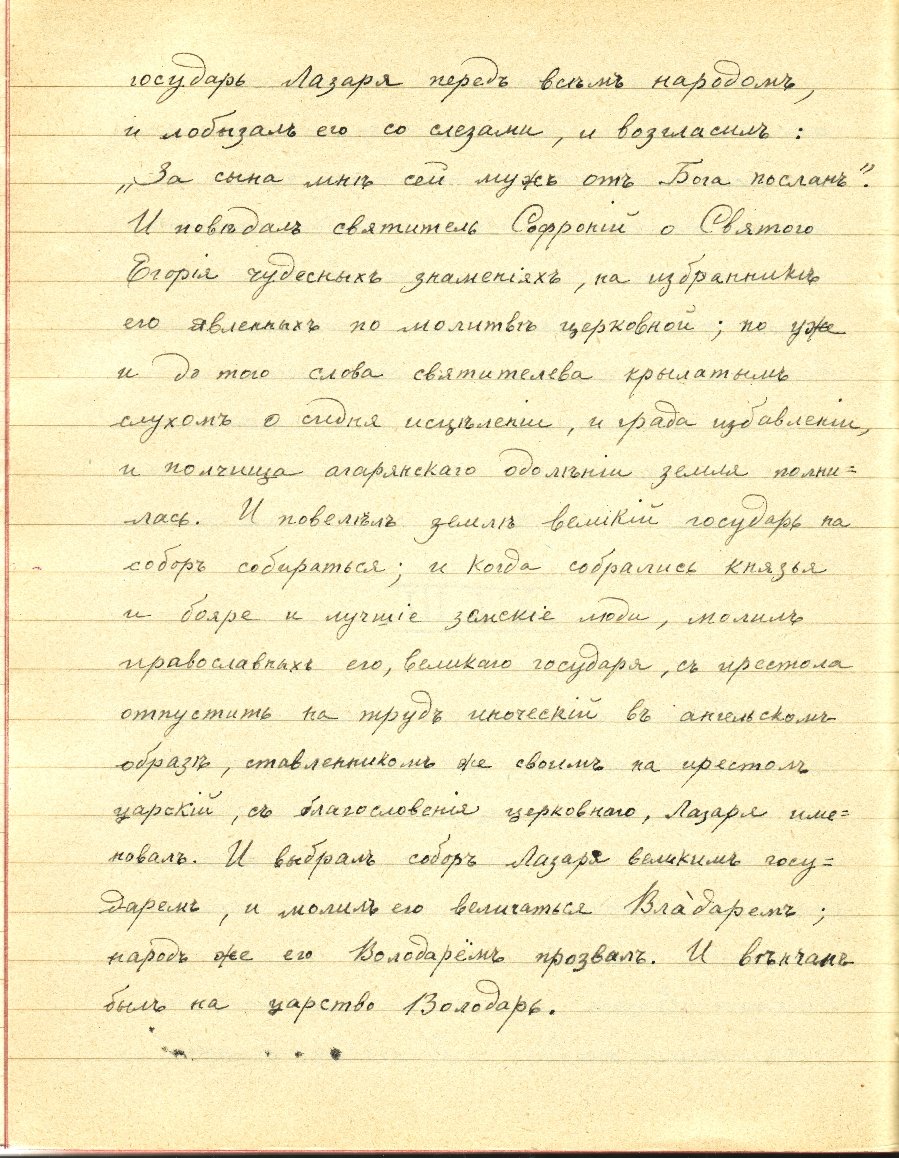 государь Лазаря передъ всѣмъ народомъ,
и лобызалъ его со слезами, и возгласилъ:
„За сына мнѣ сей мужъ отъ Бога посланъ”.
И повѣдалъ святитель Софроній о Святого
Егорія чудесныхъ знаменіяхъ, на избранникѣ
его явленныхъ по молитвѣ церковной; но уже
и до того слова святителева крылатымъ
слухомъ о сидня исцѣленіи, и града избавленіи,
и полчища агарянскаго одолѣніи земля полни=
лась. И повелѣлъ землѣ великій государь на
соборъ собираться; и когда собрались князья
и бояре и лучшіе земскіе люди, молилъ
православныхъ его, великаго государя, съ престола
отпустить на трудъ иноческій въ ангельскомъ
образѣ, ставленникомъ же своимъ на престолъ
царскій, съ благословенія церковнаго, Лазаря име=
новалъ. И выбралъ соборъ Лазаря великимъ госу=
даремъ, и молилъ его величаться Вла̀даремъ;
народъ же его Володарёмъ прозвалъ. И вѣнчанъ
былъ на царство Володарь.